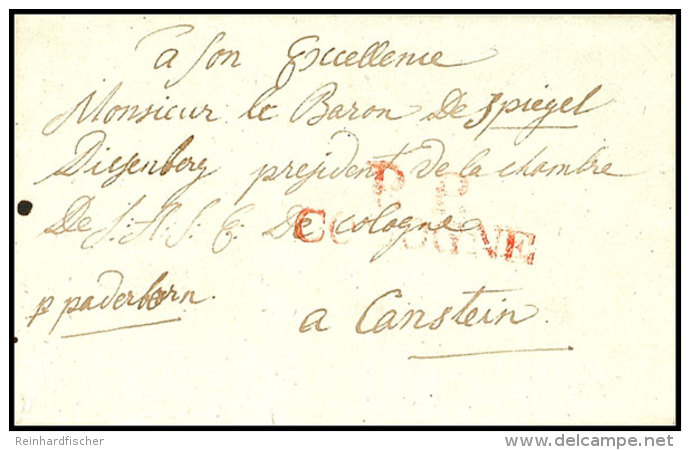 a Son Excellence
Monsieur le Baron De Spiegel
Diesenberg president de la chambre
P. P.
De S: A: S: E: De Cologne
COLOGNE
p paderborn.
a Canstein.
Reinhardfischer
delcampe.net